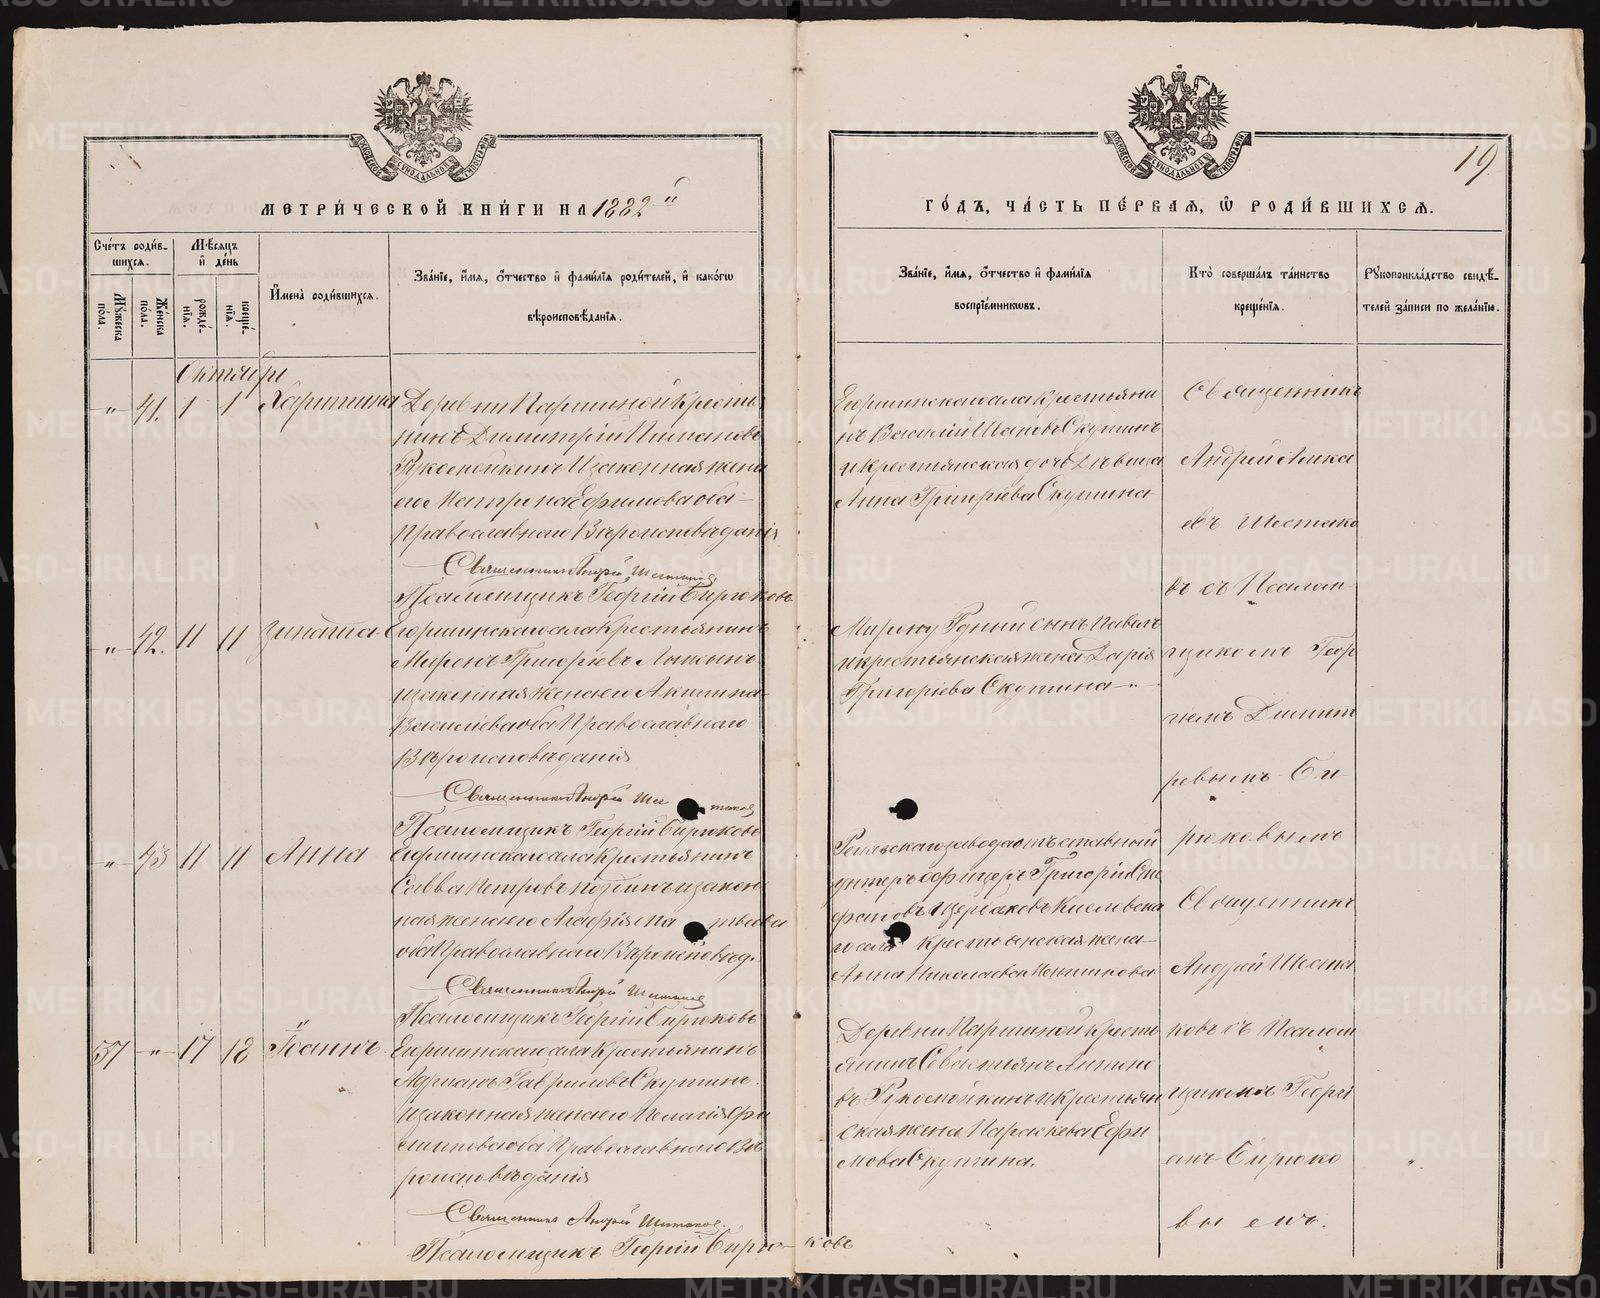 19
МЕТРИ́ЧЕСКОЙ КНИ́ГИ НА 1882й
ГО́ДЪ, ЧА́СТЬ ПЕ́РВАЯ, Ѡ҆ РОДИ́ВШИХСЯ.
Сче́тъ роди́в-
шихся.
Мꙋ́жеска
по́ла.
Же́нска
по́ла.
Мѣ́сяцъ
и҆ де́нь
рожде́-
нїя.
креще́-
нїя.
И҆мена̀ роди́вшихся.
Зва́нїе, и҆́мя, ѻ҆́тчество и҆ фами́лїя роди́телей, и҆ како́гѡ
вѣроисповѣ́данїя.
Зва́нїе, и҆́мя, ѻ҆́тчество и҆ фами́лїя
воспрїе́мникѡвъ.
Кто̀ соверша́лъ та́инство
креще́нїя.
Рꙋкоприкла́дство свидѣ́-
телей за́писи по жела́нїю.
Октябрь
-"- 41. 1 1 Харитина
Деревни Паршиной крестья
нинъ Димитрій Пимановъ
Рукомойкинъ и законная жена
его Матрона Ефимова оба
Православнаго Вѣроисповѣданія
Священникъ Андрей Шестаковъ
Псаломщикъ Георгій Бирюковъ
Егоршинскаго села крестьяни
нъ Василій Ивановъ Скутинъ
и крестьянская дочь Дѣвица
Анна Григорьева Скутина
Священникъ
Андрей Алекс
евъ Шестако
въ съ Псалом
щикомъ Геор
гіемъ Димит
ревымъ Би-
рюковымъ
-"- 42. 11 11 Зинаида
Егоршинскаго села Крестьянинъ
Миронъ Григорьевъ
и законная жена его Акилина
Васильева оба Православнаго
Вѣроисповѣданія
Священникъ Андрей Шестаковъ
Псаломщикъ Георгій Бирюковъ
Мирону Родный сынъ Павелъ
и крестьянская жена Дарія
Григорьева Скутина-"-
-"- 43 11 11 Анна
Егоршинскаго села Крестьянинъ
Савва Петровъ и закон
ная жена его Агафія
оба Православнаго Вѣроисповѣд.
Священникъ Андрей Шестаковъ
Псаломщикъ Георгій Бирюковъ
завода отставной
унтеръ офицеръ Григорій
го села крестьянская жена
Анна Николаева
Священникъ
Андрей Шеста
ковъ съ Псалом
щикомъ Георгі
емъ Бирюко
вымъ.
57 -"- 17 18 Іоаннъ
Егоршинскаго села Крестьянинъ
Адріанъ Гавриловъ Скутинъ
и законная жена его Пелагія Фи
липпова оба Православнаго Вѣ
роисповѣданія
Священникъ Андрей Шестаковъ.
Псаломщикъ Георгій Бирюковъ
Деревни Паршиной Кресть
янинъ Севастьянъ Антоно
въ Рукомойкинъ и Крестьян
ская жена Параскева Ефи
мова Скутина.
METRIKI.GASO-URAL.RU